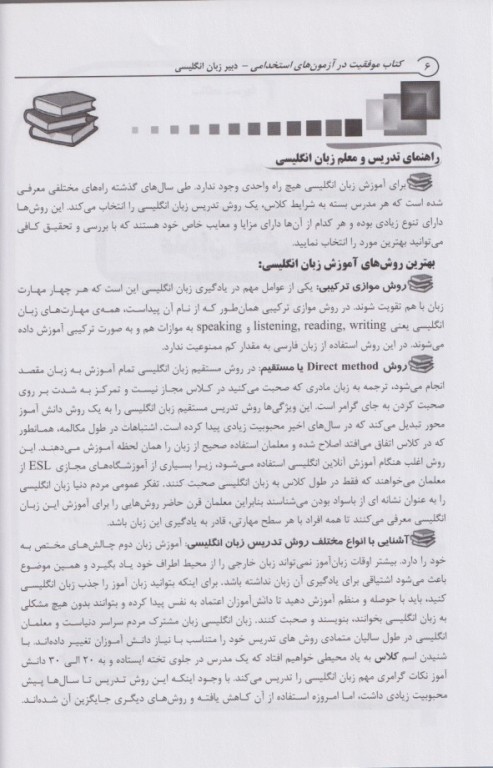 ۶ کتاب موفقیت در آزمون‌های استخدامی – دبیر زبان انگلیسی
راهنمای تدریس و معلم زبان انگلیسی
برای آموزش زبان انگلیسی هیچ راه واحدی وجود ندارد. طی سال‌های گذشته راه‌های مختلفی معرفی
شده است که هر مدرس بسته به شرایط کلاس، یک روش تدریس زبان انگلیسی را انتخاب می‌کند. این روش‌ها
دارای تنوع زیادی بوده و هر کدام از آن‌ها دارای مزایا و معایب خاص خود هستند که با بررسی و تحقیق کافی
می‌توانید بهترین مورد را انتخاب نمایید.
بهترین روش‌های آموزش زبان انگلیسی:
روش موازی ترکیبی: یکی از عوامل مهم در یادگیری زبان انگلیسی این است که هر چهار مهارت
زبان با هم تقویت شوند. در روش موازی ترکیبی همان‌طور که از نام آن پیداست، همه‌ی مهارت‌های زبان
انگلیسی یعنی listening, reading, writing و speaking به موازات هم و به صورت ترکیبی آموزش داده
می‌شوند. در این روش استفاده از زبان فارسی به مقدار کم ممنوعیت ندارد.
روش Direct method یا مستقیم: در روش مستقیم زبان انگلیسی تمام آموزش به زبان مقصد
انجام می‌شود، ترجمه به زبان مادری که صحبت می‌کنید در کلاس مجاز نیست و تمرکز به شدت بر روی
صحبت کردن به جای گرامر است. این ویژگی‌ها روش تدریس مستقیم زبان انگلیسی را به یک روش دانش آموز
محور تبدیل می‌کند که در سال‌های اخیر محبوبیت زیادی پیدا کرده است. اشتباهات در طول مکالمه، همانطور
که در کلاس اتفاق می‌افتد اصلاح شده و معلمان استفاده صحیح از زبان را همان لحظه آموزش می‌دهند. این
روش اغلب هنگام آموزش آنلاین انگلیسی استفاده می‌شود، زیرا بسیاری از آموزشگاه‌های مجازی ESL از
معلمان می‌خواهند که فقط در طول کلاس به زبان انگلیسی صحبت کنند. تفکر عمومی مردم دنیا زبان انگلیسی
را به عنوان نشانه ای از باسواد بودن می‌شناسند بنابراین معلمان قرن حاضر روش‌هایی را برای آموزش این زبان
انگلیسی معرفی می‌کنند تا همه افراد با هر سطح مهارتی، قادر به یادگیری این زبان باشد.
آشنایی با انواع مختلف روش تدریس زبان انگلیسی: آموزش زبان دوم چالش‌های مختص به
خود را دارد. بیشتر اوقات زبان‌آموز نمی‌تواند زبان خارجی را از محیط اطراف خود یاد بگیرد و همین موضوع
باعث می‌شود اشتیاقی برای یادگیری آن زبان نداشته باشد. برای اینکه بتوانید زبان آموز را جذب زبان انگلیسی
کنید، باید با حوصله و منظم آموزش دهید تا دانش‌آموزان اعتماد به نفس پیدا کرده و بتوانند بدون هیچ مشکلی
به زبان انگلیسی بخوانند، بنویسند و صحبت کنند. زبان انگلیسی زبان مشترک مردم سراسر دنیاست و معلمان
انگلیسی در طول سالیان متمادی روش های تدریس خود را متناسب با نیاز دانش آموزان تغییر داده‌اند. با
شنیدن اسم کلاس به یاد محیطی خواهیم افتاد که یک مدرس در جلوی تخته ایستاده و به ۲۰ الی ۳۰ دانش
آموز نکات گرامری مهم زبان انگلیسی را تدریس می‌کند. با وجود اینکه این روش تدریس تا سال‌ها پیش
محبوبیت زیادی داشت، اما امروزه استفاده از آن کاهش یافته و روش‌های دیگری جایگزین آن شده‌اند.